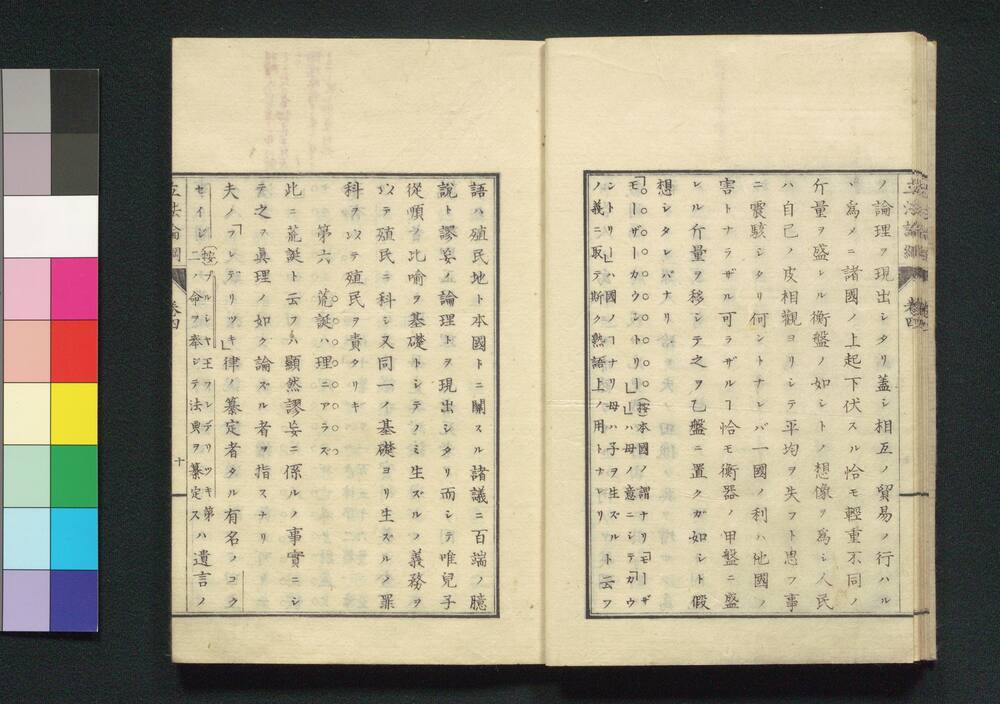 ノ論理ヲ現出シタリ蓋シ相互ノ貿易ノ行ハル
ヽ爲メニ諸國ノ上起下伏スル恰モ輕重不同ノ
斤量ヲ盛レル衡盤ノ如シトノ想像ヲ爲シ人民
ハ自己ノ皮相觀ヨリシテ平均ヲ失フト思フ事
ニ震駭シタリ何ントナレバ一國ノ利ハ他國ノ
害トナラザル可ラザルヿ恰モ衡器ノ甲盤ニ盛
レル斤量ヲ移シテ之ヲ乙盤ニ置クガ如シト假
想シタレバナリ
「モーザーカウントリー」(按)本國ノ謂ナリ「モーザ
ー」ハ母ノ意ニシテ「カウ
ントリー」ハ國ノヿナリ母ハ子ヲ生ズルト云フ
ノ義ニ取テ斯ク熟語上ノ用トナレリ
語ハ殖民地ト本國トニ關スル諸議ニ百端ノ臆
說ト謬妄ノ論理トヲ現出シタリ而シテ唯兒子
從順ノ比喩ヲ基礎トシテノミ生ズルノ義務ヲ
以テ殖民ニ科シ又同一ノ基礎ヨリ生ズルノ罪
科ヲ以テ殖民ヲ責タリキ
第六 荒誕ハ理ニアラズ
此ニ荒誕ト云フハ顯然謬妄ニ係ルノ事實ニシ
テ之ヲ眞理ノ如ク論ズル者ヲ指スナリ
夫ノ「フレデリツキ」律ノ纂定者タル有名ノコク
セイジ(按)プルシヤ王フレデリツキ第
二ノ命ヲ奉シテ法典ヲ纂定スハ遺言ノ
立法論綱 卷四 十